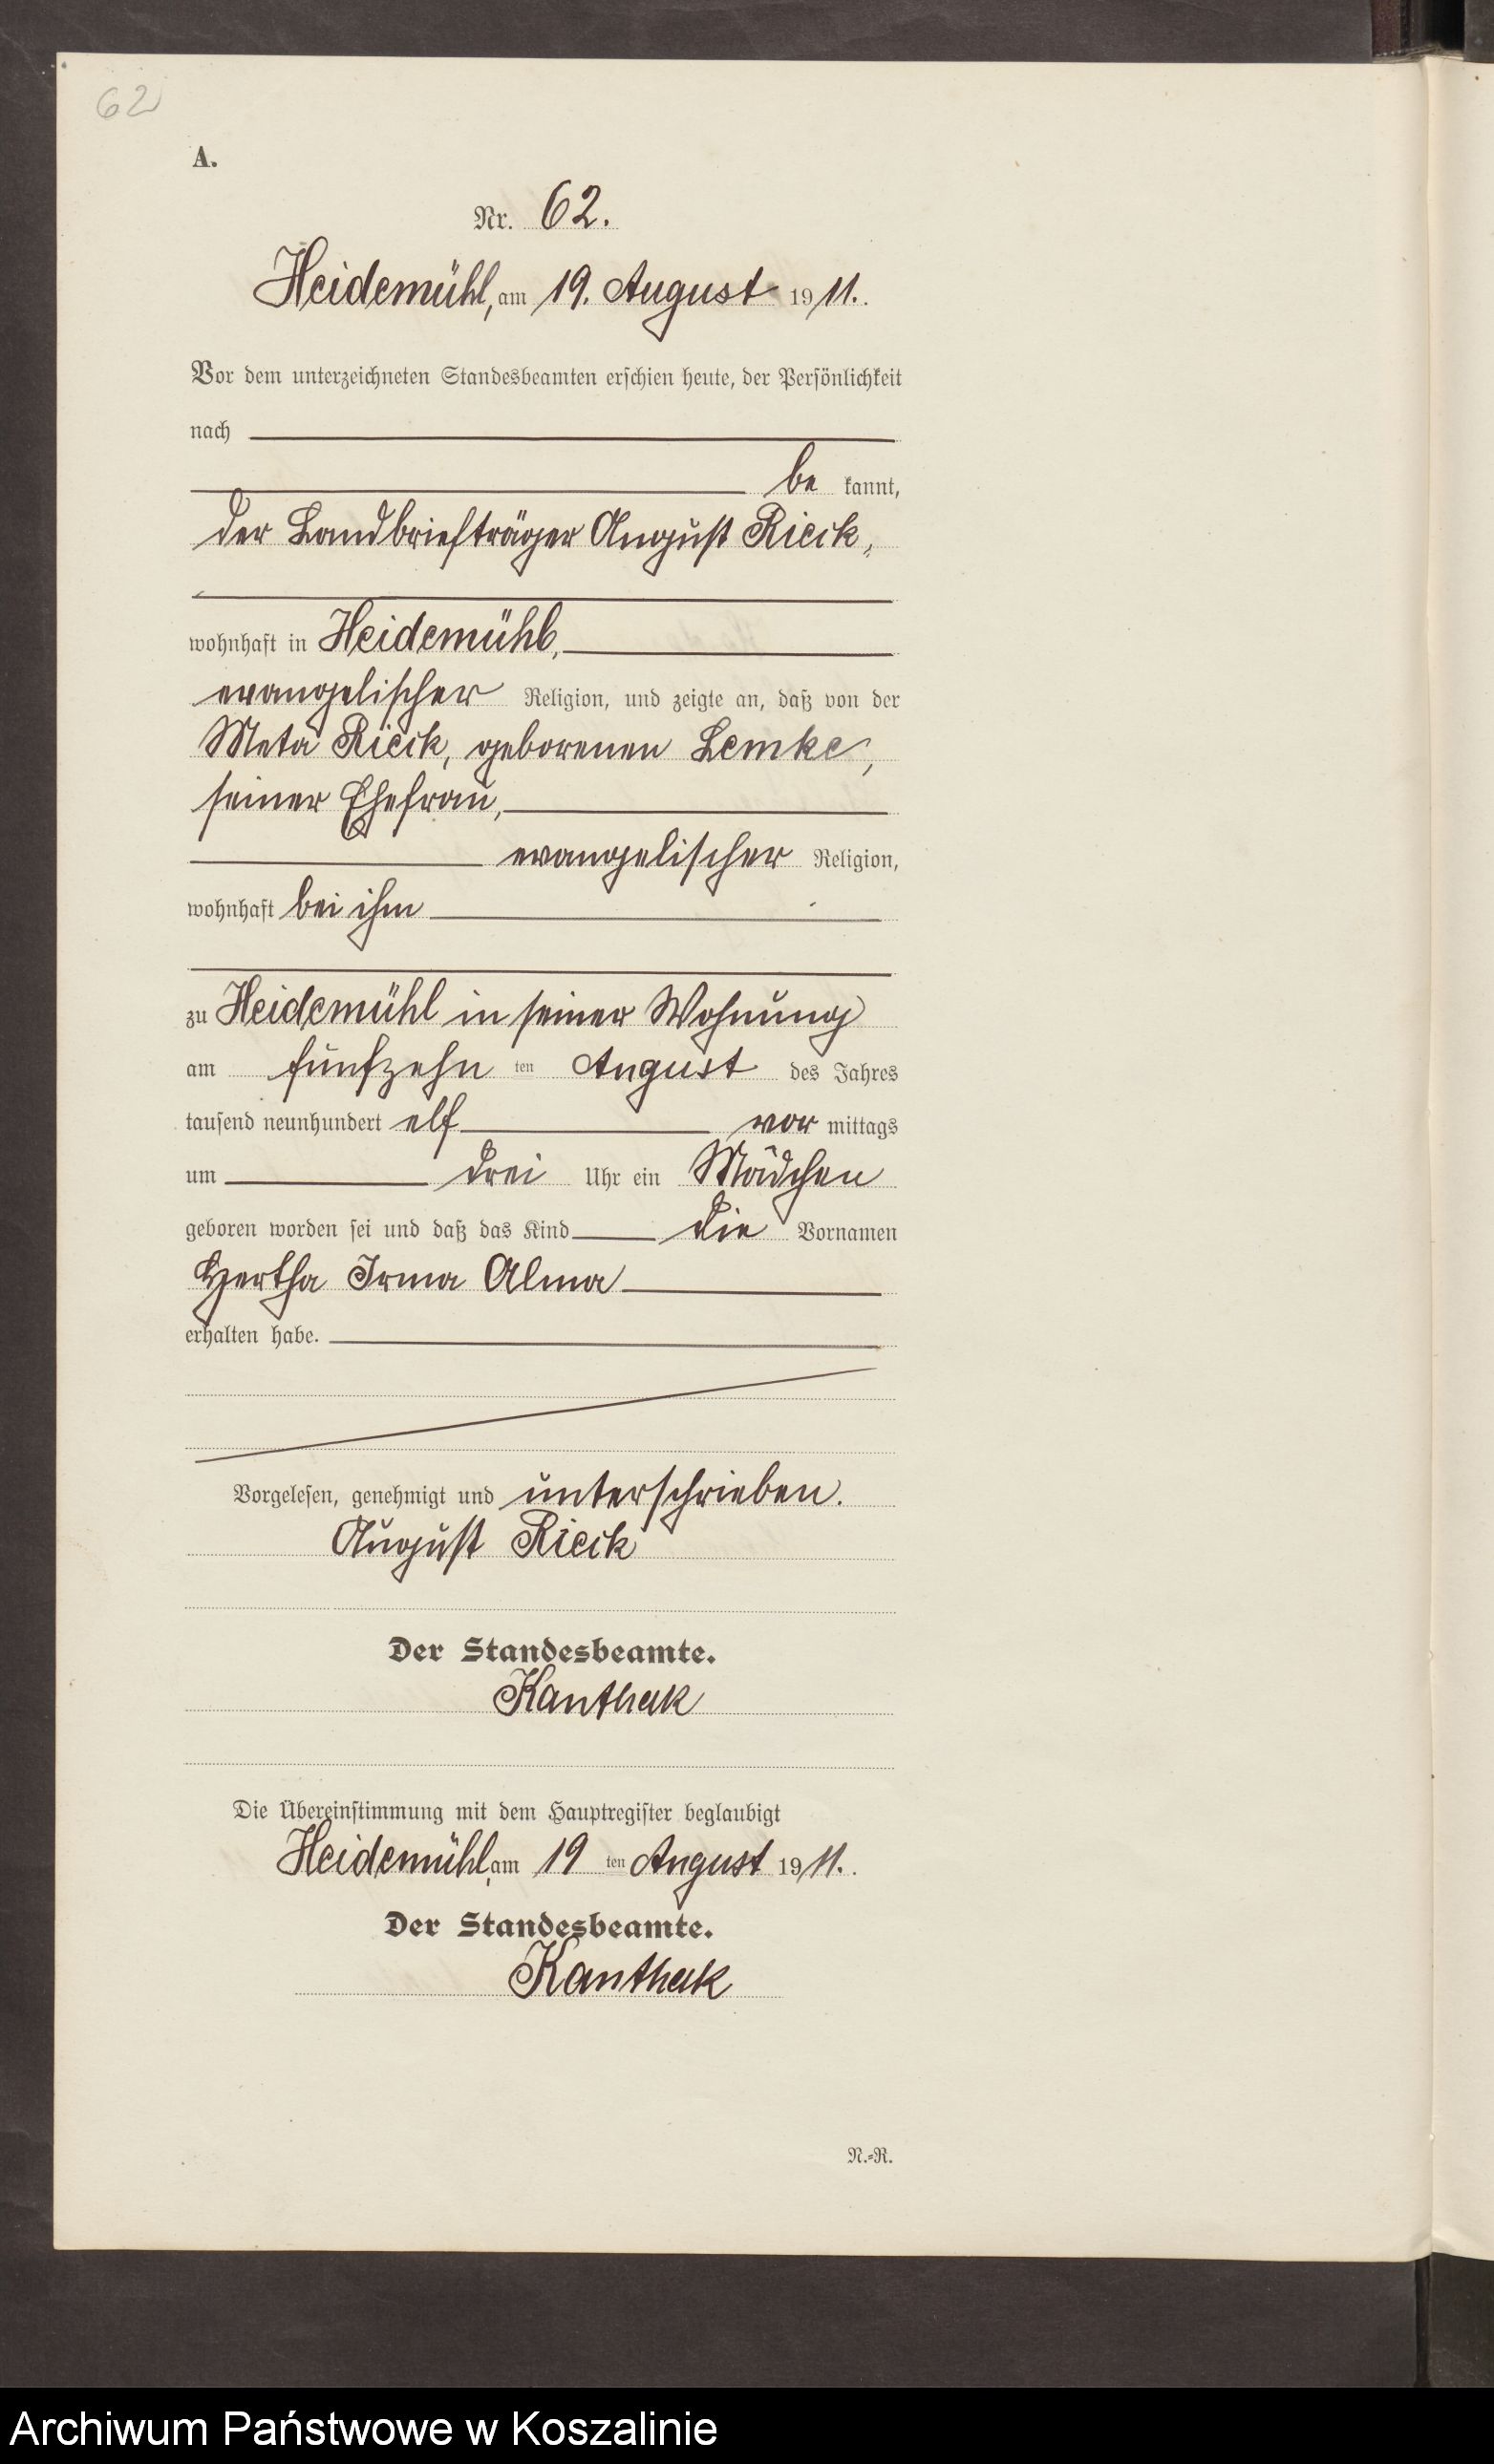 62
A.
Nr. 62.
Heidemühl, am 19. August 1911.
Vor dem unterzeichneten Standesbeamten erschien heute, der Persönlichkeit
nach
be kannt,
der Landbriefträger August Rieck,
wohnhaft in Heidemühl,
evangelischer Religion, und zeigte an, daß von der
Meta Rieck, geborenen Lemke,
seiner Ehefrau,
evangelischer Religion,
wohnhaft bei ihm
zu Heidemühl in seiner Wohnung
am fünfzehn ten August des Jahres
tausend neunhundert elf vor mittags
um drei Uhr ein Mädchen
geboren worden sei und daß das Kind die Vornamen
Hertha Irma Alma
erhalten habe.
Vorgelesen, genehmigt und unterschrieben.
August Rieck
Der Standesbeamte.
Kanthak
Die Übereinstimmung mit dem Hauptregister beglaubigt
Heidemühl, am 19 ten August 1911.
Der Standesbeamte.
Kanthak
N.=R.
Archiwum Państwowe w Koszalinie